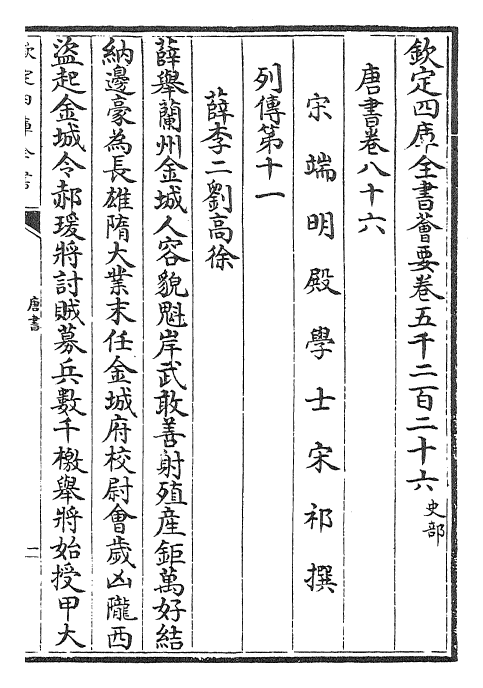 欽定四庫全書薈要卷五千二百二十六 史部
唐書卷八十六
宋端明殿學士宋祁撰
列傳第十一
薛李二劉高徐
薛舉蘭州金城人容貌魁岸武敢善射殖産鉅萬好結
納邊豪為長雄隋大業末任金城府校尉會歲凶隴西
盜起金城令郝瑗將討賊募兵數千檄舉將始授甲大
唐書